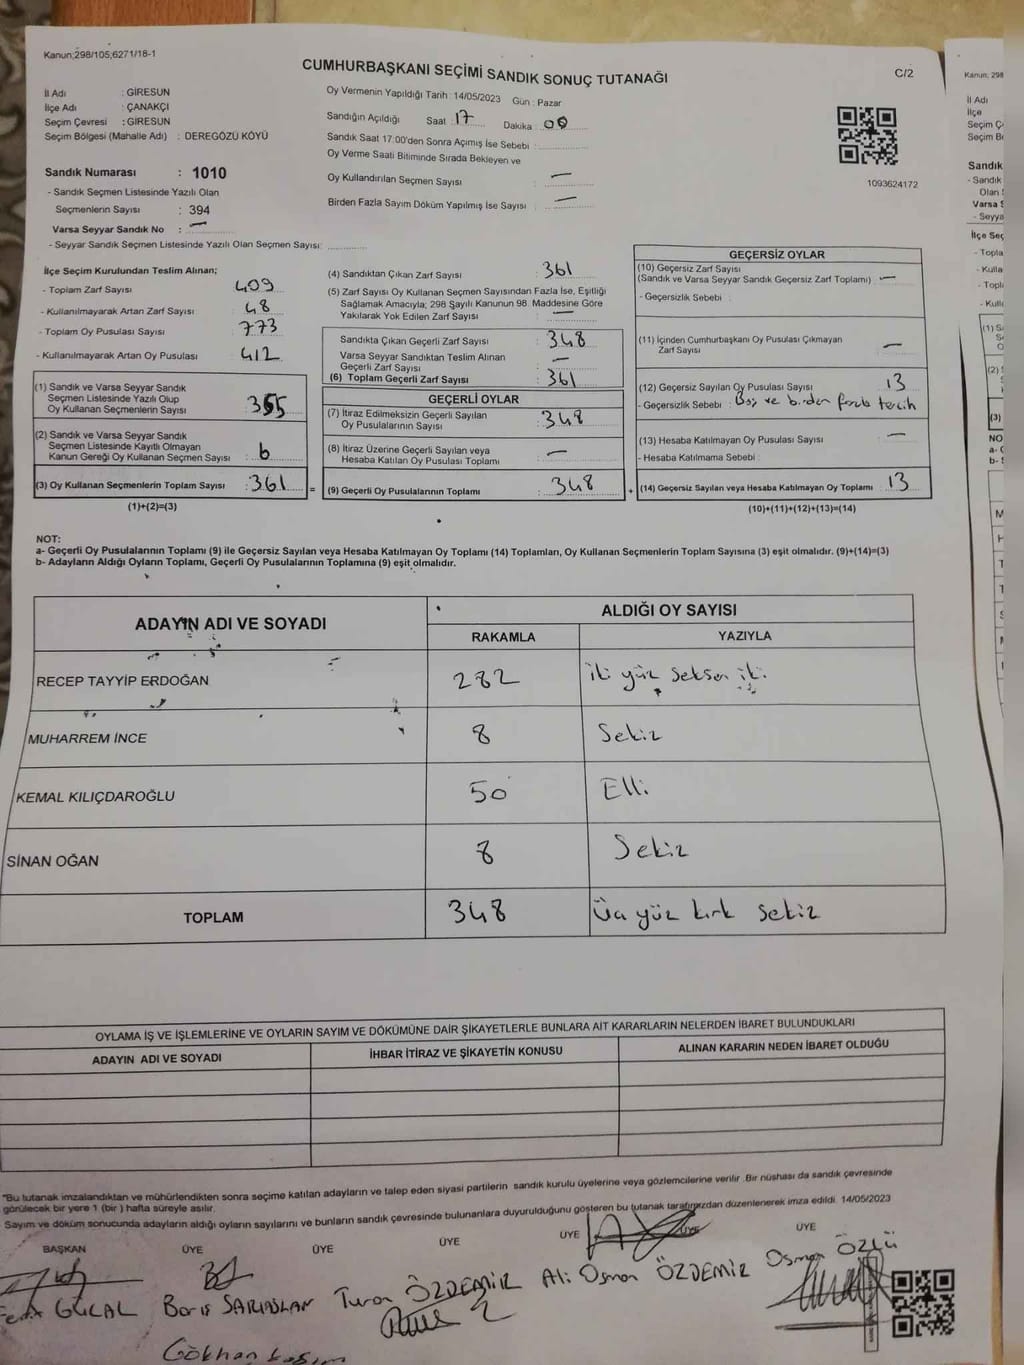 Kanun;298/105,6271/18-1
CUMHURBAŞKANI SEÇİMİ SANDIK SONUÇ TUTANAĞI
C/2
İl Adı : GİRESUN
İlçe Adı : ÇANAKÇI
Seçim Çevresi : GİRESUN
Seçim Bölgesi (Mahalle Adı) : DEREGÖZÜ KÖYÜ
Oy Vermenin Yapıldığı Tarih : 14/05/2023 Gün : Pazar
Sandığın Açıldığı Saat : 17 Dakika : 00
Sandık Saat 17:00'den Sonra Açımış İse Sebebi :
Oy Verme Saati Bitiminde Sırada Bekleyen ve
Oy Kullandırılan Seçmen Sayısı : —
Birden Fazla Sayım Döküm Yapılmış İse Sayısı : —
1093624172
Sandık Numarası : 1010
- Sandık Seçmen Listesinde Yazılı Olan
Seçmenlerin Sayısı : 394
Varsa Seyyar Sandık No : —
- Seyyar Sandık Seçmen Listesinde Yazılı Olan Seçmen Sayısı:
İlçe Seçim Kurulundan Teslim Alınan;
- Toplam Zarf Sayısı : 409
- Kullanılmayarak Artan Zarf Sayısı : 48
- Toplam Oy Pusulası Sayısı : 773
- Kullanılmayarak Artan Oy Pusulası : 412
(1) Sandık ve Varsa Seyyar Sandık
Seçmen Listesinde Yazılı Olup
Oy Kullanan Seçmenlerin Sayısı : 355
(2) Sandık ve Varsa Seyyar Sandık
Seçmen Listesinde Kayıtlı Olmayan
Kanun Gereği Oy Kullanan Seçmen Sayısı : 6
(3) Oy Kullanan Seçmenlerin Toplam Sayısı : 361
(1)+(2)=(3)
(4) Sandıktan Çıkan Zarf Sayısı : 361
(5) Zarf Sayısı Oy Kullanan Seçmen Sayısından Fazla İse, Eşitliği
Sağlamak Amacıyla; 298 Sayılı Kanunun 98. Maddesine Göre
Yakılarak Yok Edilen Zarf Sayısı : —
Sandıkta Çıkan Geçerli Zarf Sayısı : 348
Varsa Seyyar Sandıktan Teslim Alınan
Geçerli Zarf Sayısı : —
(6) Toplam Geçerli Zarf Sayısı : 361
GEÇERLİ OYLAR
(7) İtiraz Edilmeksizin Geçerli Sayılan
Oy Pusulalarının Sayısı : 348
(8) İtiraz Üzerine Geçerli Sayılan veya
Hesaba Katılan Oy Pusulası Toplamı : —
= (9) Geçerli Oy Pusulalarının Toplamı : 348
GEÇERSİZ OYLAR
(10) Geçersiz Zarf Sayısı
(Sandık ve Varsa Seyyar Sandık Geçersiz Zarf Toplamı) : —
- Geçersizlik Sebebi :
(11) İçinden Cumhurbaşkanı Oy Pusulası Çıkmayan
Zarf Sayısı : —
(12) Geçersiz Sayılan Oy Pusulası Sayısı : 13
- Geçersizlik Sebebi : Boş ve birden fazla tercih
(13) Hesaba Katılmayan Oy Pusulası Sayısı : —
- Hesaba Katılmama Sebebi :
+ (14) Geçersiz Sayılan veya Hesaba Katılmayan Oy Toplamı : 13
(10)+(11)+(12)+(13)=(14)
NOT:
a- Geçerli Oy Pusulalarının Toplamı (9) ile Geçersiz Sayılan veya Hesaba Katılmayan Oy Toplamı (14) Toplamları, Oy Kullanan Seçmenlerin Toplam Sayısına (3) eşit olmalıdır. (9)+(14)=(3)
b- Adayların Aldığı Oyların Toplamı, Geçerli Oy Pusulalarının Toplamına (9) eşit olmalıdır.
ADAYIN ADI VE SOYADI
ALDIĞI OY SAYISI
RAKAMLA YAZIYLA
RECEP TAYYİP ERDOĞAN 282 iki yüz seksen iki
MUHARREM İNCE 8 Sekiz
KEMAL KILIÇDAROĞLU 50 Elli
SİNAN OĞAN 8 Sekiz
TOPLAM 348 Üç yüz kırk sekiz
OYLAMA İŞ VE İŞLEMLERİNE VE OYLARIN SAYIM VE DÖKÜMÜNE DAİR ŞİKAYETLERLE BUNLARA AİT KARARLARIN NELERDEN İBARET BULUNDUKLARI
ADAYIN ADI VE SOYADI İHBAR İTİRAZ VE ŞİKAYETİN KONUSU ALINAN KARARIN NEDEN İBARET OLDUĞU
"Bu tutanak imzalandıktan ve mühürlendikten sonra seçime katılan adayların ve talep eden siyasi partilerin sandık kurulu üyelerine veya gözlemcilerine verilir. Bir nüshası da sandık çevresinde
görülecek bir yere 1 (bir) hafta süreyle asılır.
Sayım ve döküm sonucunda adayların aldığı oyların sayılarını ve bunların sandık çevresinde bulunanlara duyurulduğunu gösteren bu tutanak tarafımızdan düzenlenerek imza edildi. 14/05/2023
BAŞKAN ÜYE ÜYE ÜYE ÜYE ÜYE ÜYE
GÜLAL Barış SARIASLAN Turan ÖZDEMİR Ali Osman ÖZDEMİR Osman ÖZLÜ
Gökhan
Kanun; 298
İl Adı
İlçe
Seçim Ç
Seçim B
Sandık
- Sandık
Olan
Varsa S
- Seyya
İlçe Seç
- Topla
- Kulla
- Topl
- Kull
(1) S
(2)
(3)
NO
a-
b-